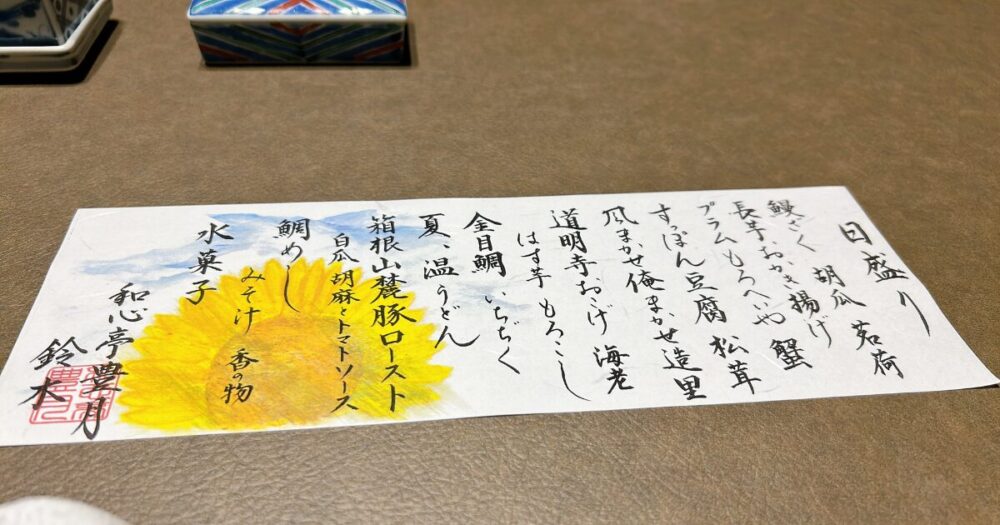 日盛り
鰻ざく 胡瓜 茗荷
長芋おかき揚げ
プラムもろへいや 蟹
すっぽん豆腐 松茸
風まかせ俺まかせ造里
道明寺おこげ 海老
はす芋 もろこし
金目鯛 いちぢく
夏、温うどん
箱根山麓豚ロースト
白瓜 胡麻とトマトソース
鯛めし
みそ汁 香の物
水菓子
和心亭豊月
鈴木